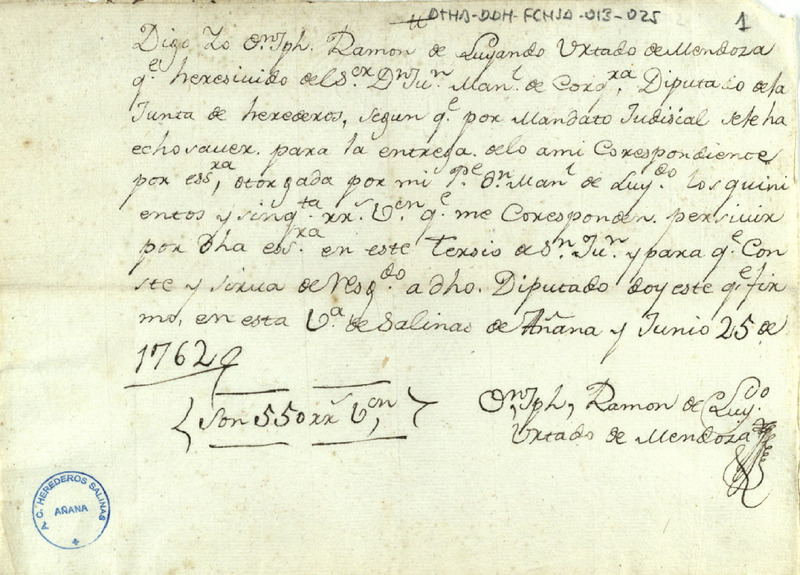 ATHA-DDH-FCHSA-013-025
1
Digo Yo Dn. Jph. Ramon de Luyando Urtado de Mendoza
qe. heresivido del Sor. Dn Jun. Manl. de Corqra, Diputado de la
Junta de herederos, segun qe. por Mandato Judisial sele ha
echo saver. para la entrega. delo ami Correspondiente
por essra, otorgada por mi Pe. Dn. Manl. de Luydo los quini
entos y sinqta. rrs. Von qe. me Coresponden. persivir
por dha essra. en este Tersio de Sn. Jun. y para qe. Con
ste y sirva de Resgdo a dho. Diputado doy este qe. fir
mo, en esta Va. de Salinas de Añana y Junio 25 de
1762
Son 550 rrs Von,
Dn, Jph, Ramon de Luydo.
Urtado de Mendoza
C. HEREDEROS SALINAS
AÑANA